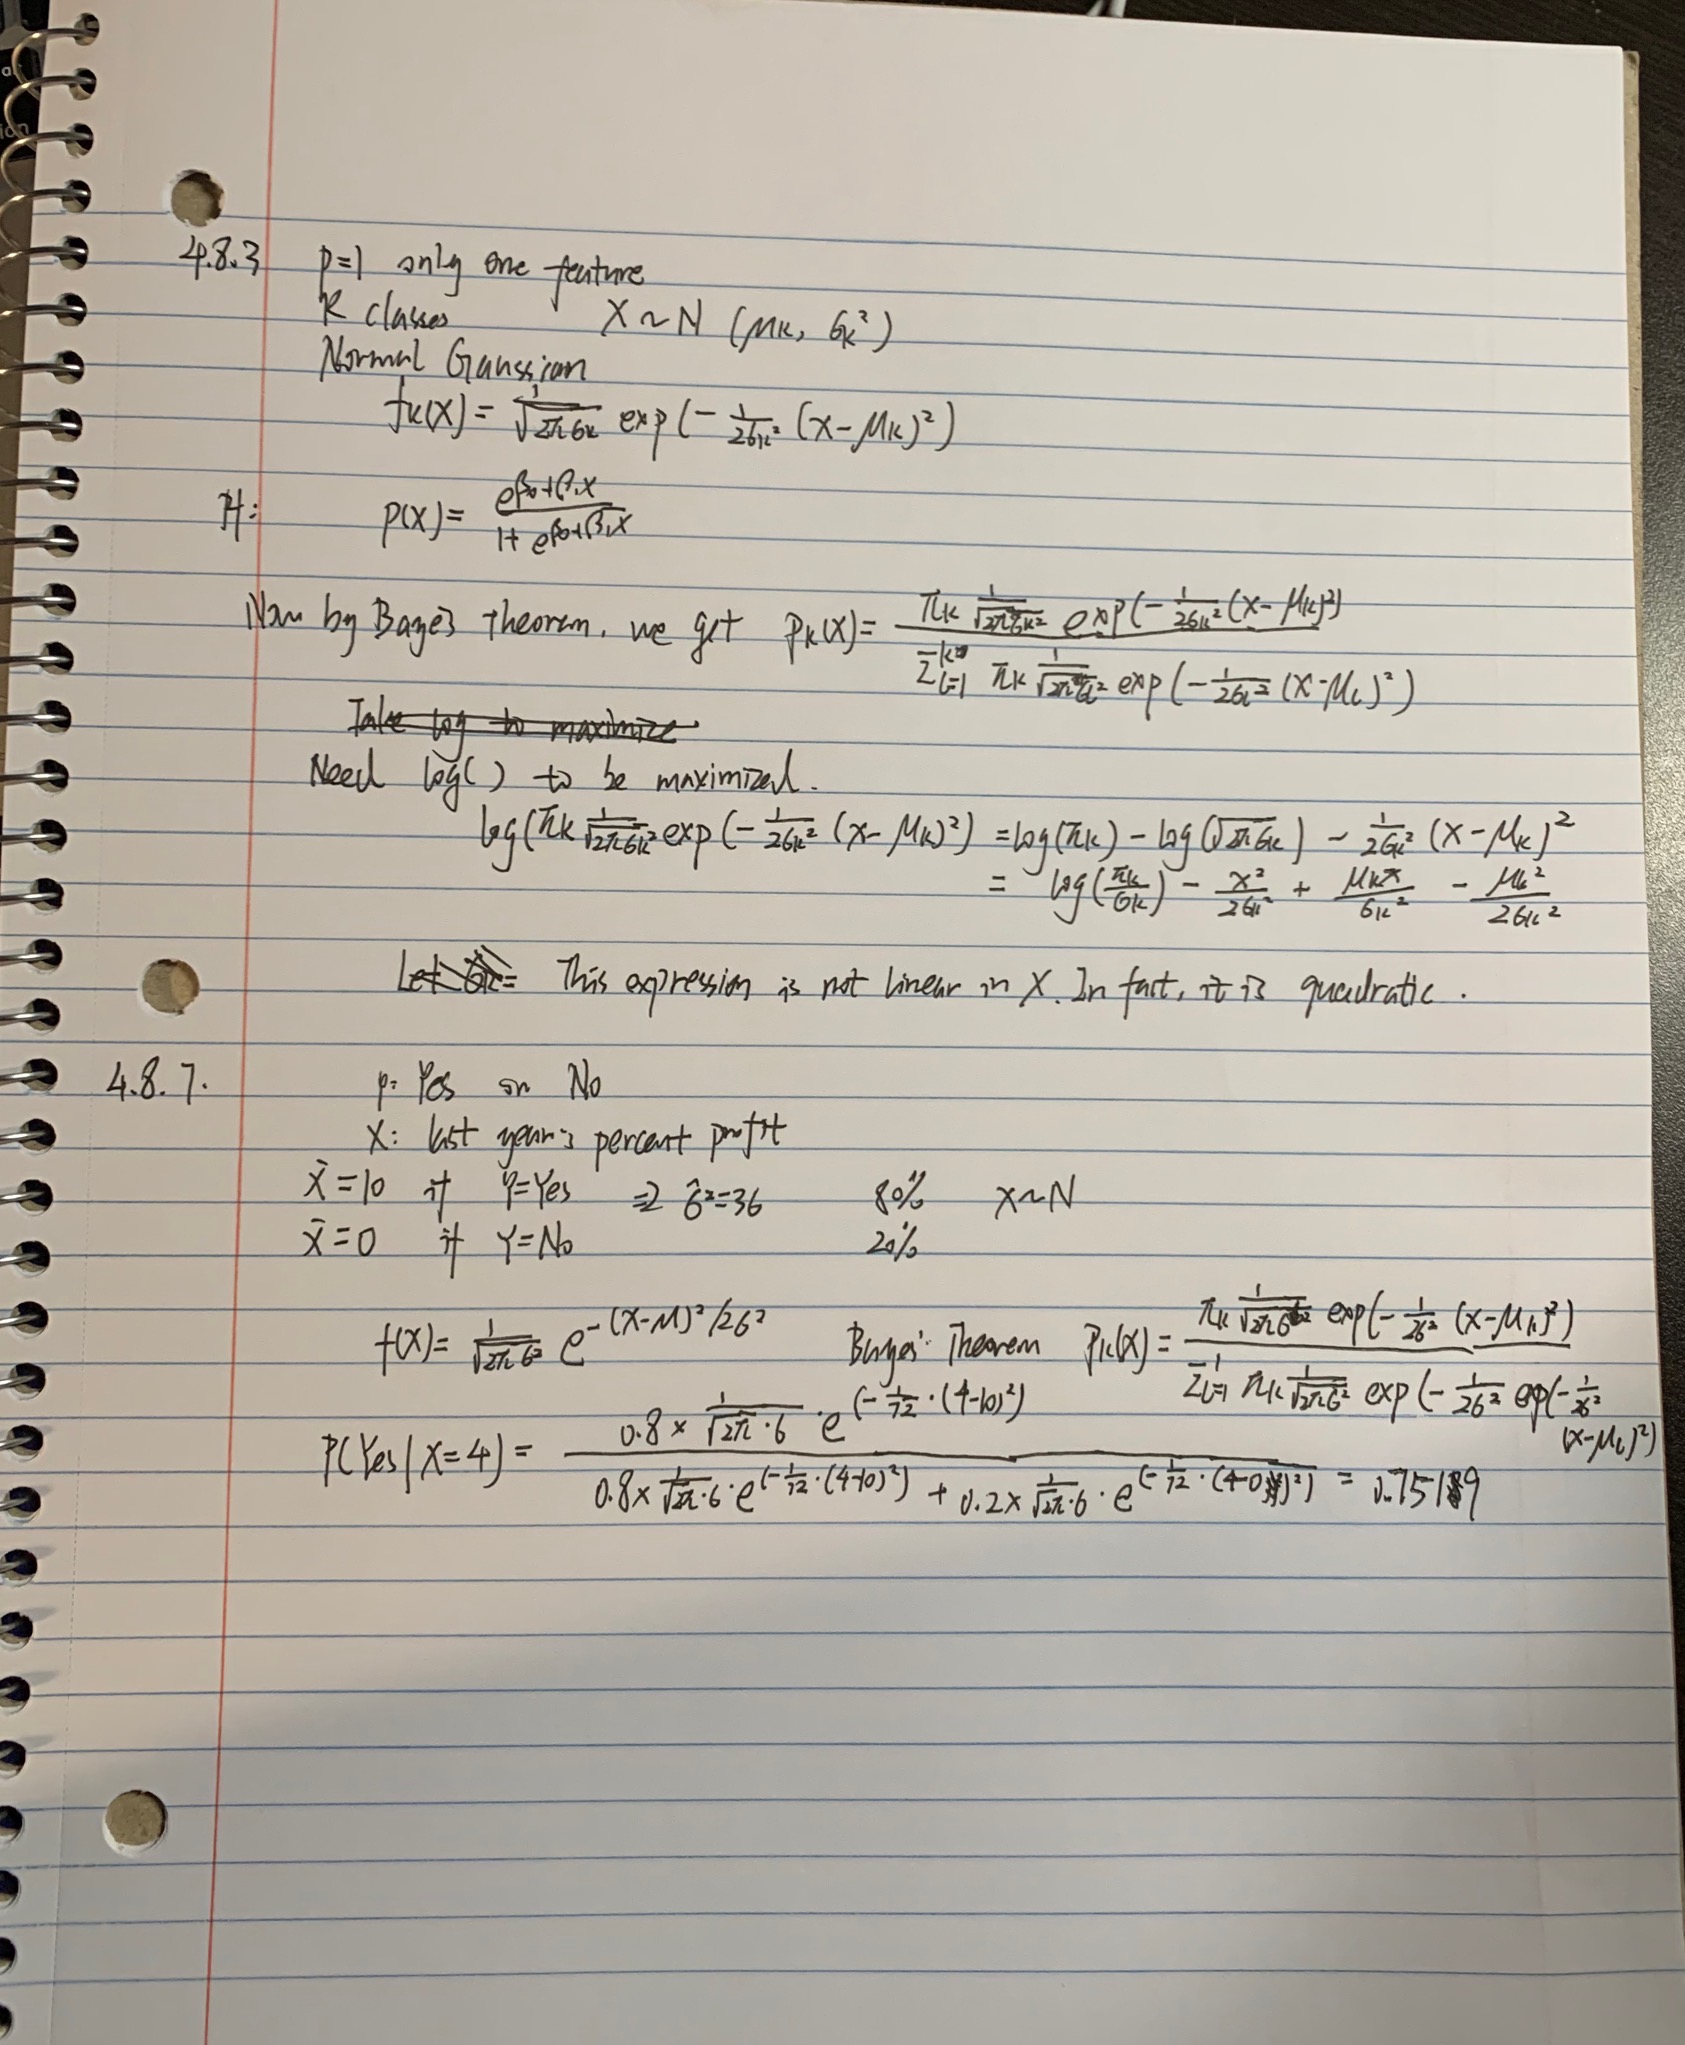 4.8.3 p=1 only one feature
K classes X~N (μk, σk²)
Normal Gaussian
fk(x) = 1/√2πσk exp(- 1/2σk² (x-μk)²)
H: p(X) = e^β0+β1x / 1+ e^β0+β1x
Now by Bayes theorem, we get pk(x) = πk 1/√2πσk² exp(- 1/2σk² (x-μk)²) / Σ^k l=1 πk 1/√2πσk² exp(- 1/2σk² (x-μl)²)
Take log to maximize
Need log( ) to be maximized.
log(πk 1/√2πσk² exp(- 1/2σk² (x-μk)²) = log(πk) - log(√2πσk) - 1/2σk² (x-μk)²
= log(πk/σk) - x²/2σk² + μkx/σk² - μk²/2σk²
Let σk= This expression is not linear in X. In fact, it is quadratic.
4.8.7. p: Yes or No
X: last year's percent profit
x̄=10 if Y=Yes ⇒ σ̂²=36 80% x~N
x̄=0 if Y=No 20%
f(x) = 1/√2πσ² e^-(x-μ)²/2σ² Bayes' Theorem Pk(x) = πk 1/√2πσ² exp(- 1/2σ² (x-μk)²) / Σ^1 l=1 πk 1/√2πσ² exp(- 1/2σ² exp(- 1/2σ² (x-μl)²)
P(Yes|X=4) = 0.8 × 1/√2π·6 · e^(- 1/72 · (4-10)²) / 0.8 × 1/√2π·6 · e^(- 1/72 · (4-10)²) + 0.2 × 1/√2π·6 · e^(- 1/72 · (4-0)²) = 0.75189